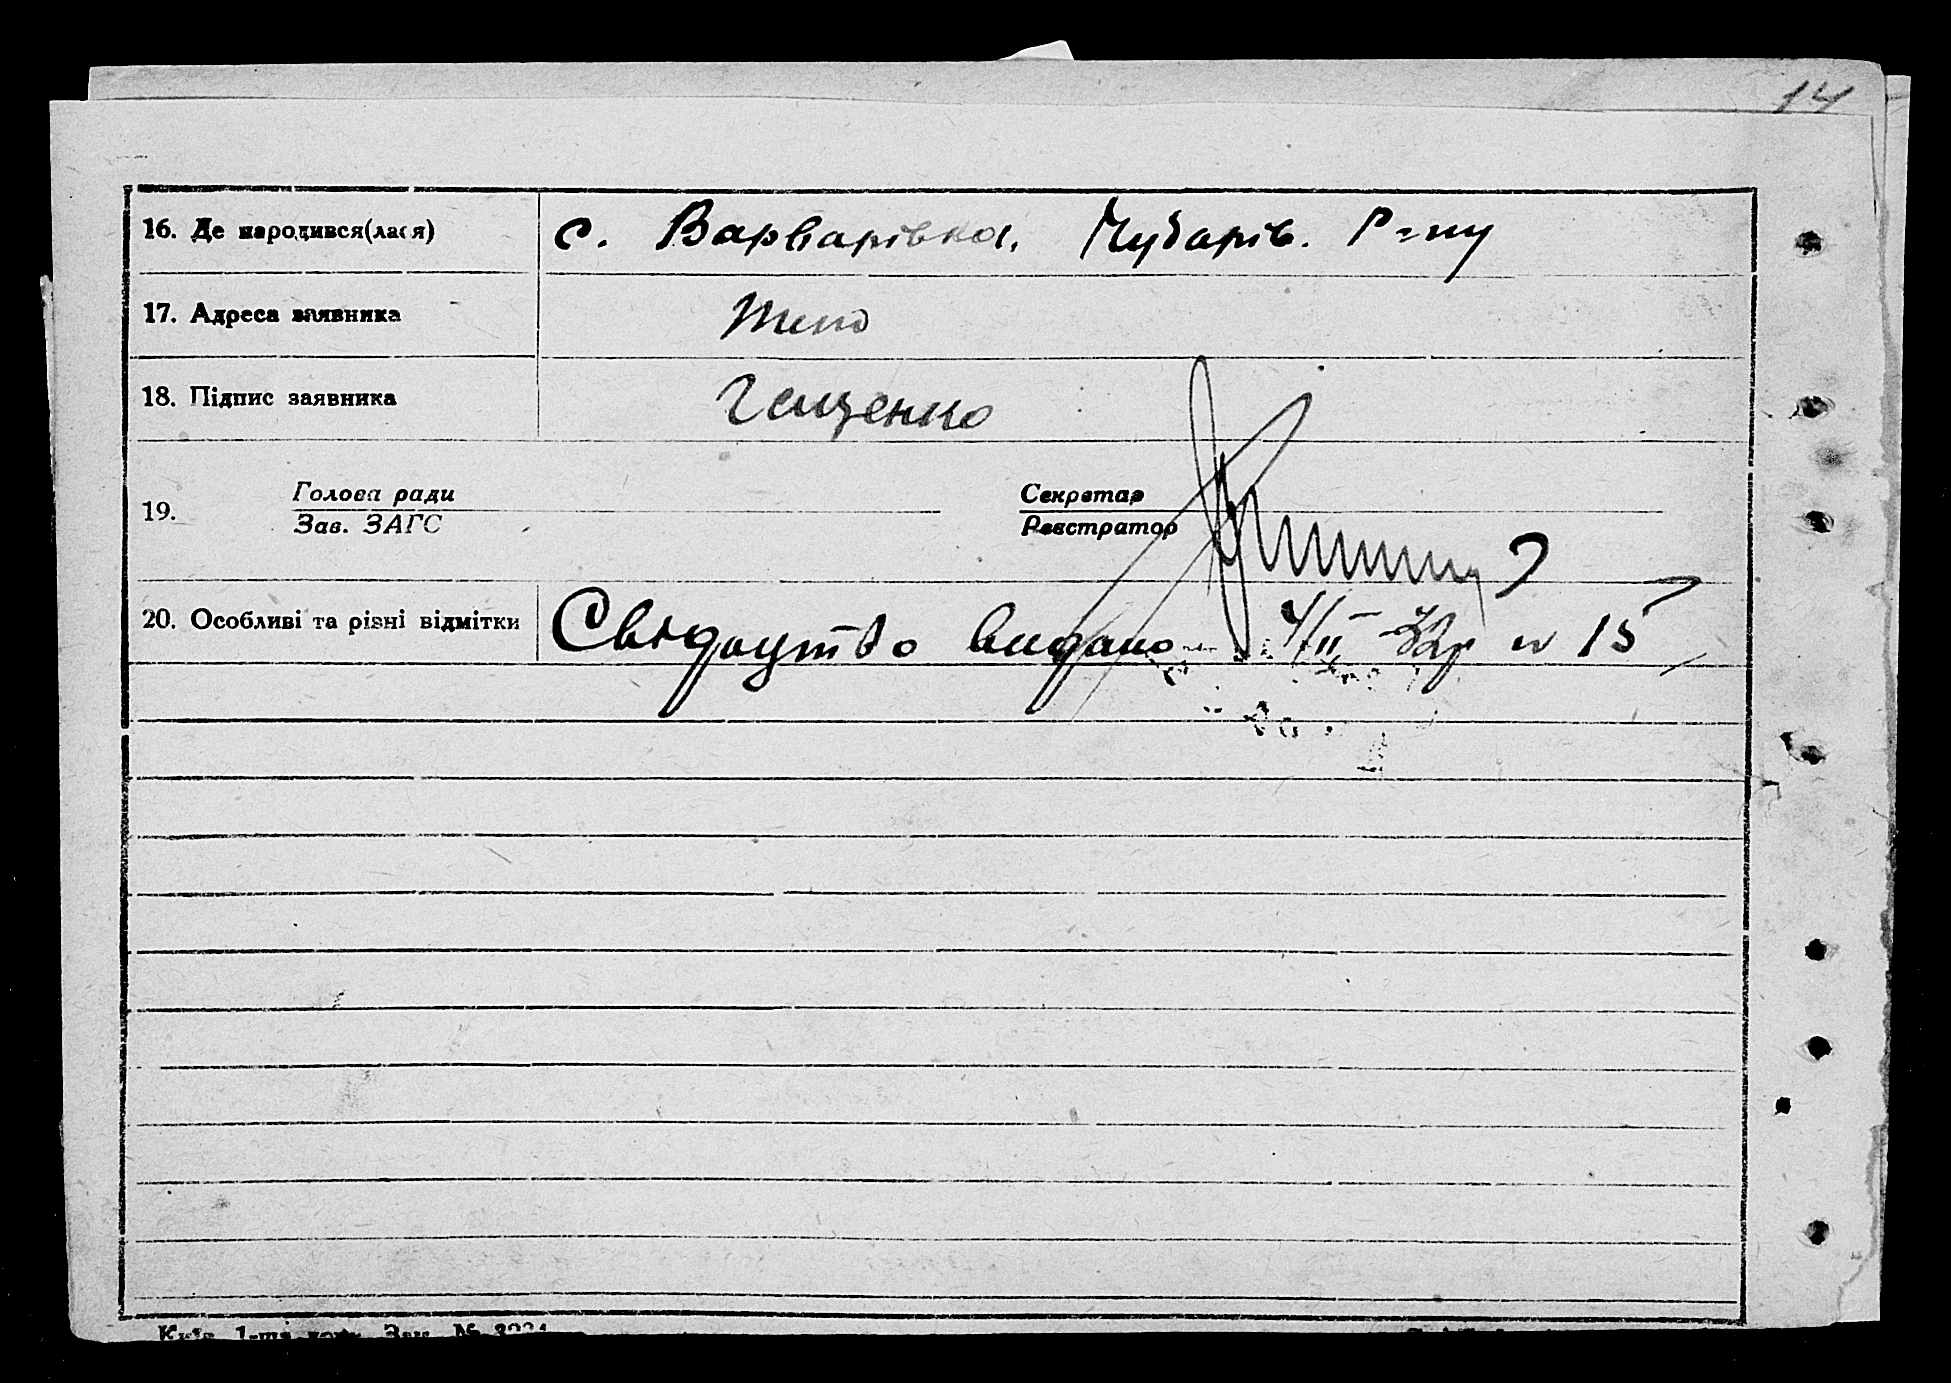 14
16. Де народився(лася) с. Варварівка, Чубарів. Р=ну
17. Адреса заявника
18. Підпис заявника Гещенко
19. Голова ради Секретар
Зав. ЗАГС Реєстратор
20. Особливі та різні відмітки Свідоцтво видано 4/II 15
Київ, 1-ша Зам. №